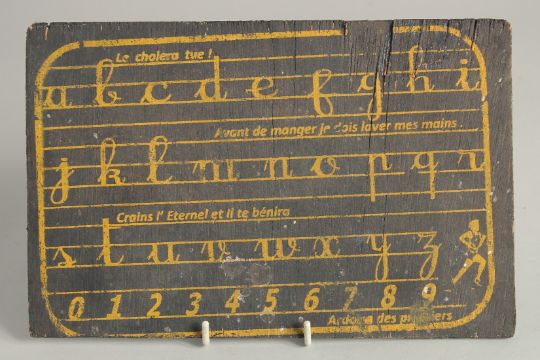 Le cholera tue !
a b c d e f g h i
Avant de manger je dois laver mes mains.
j k l m n o p q r
Crains l' Eternel et il te bénira
s t u v w x y z
0 1 2 3 4 5 6 7 8 9
Ardoise des premiers